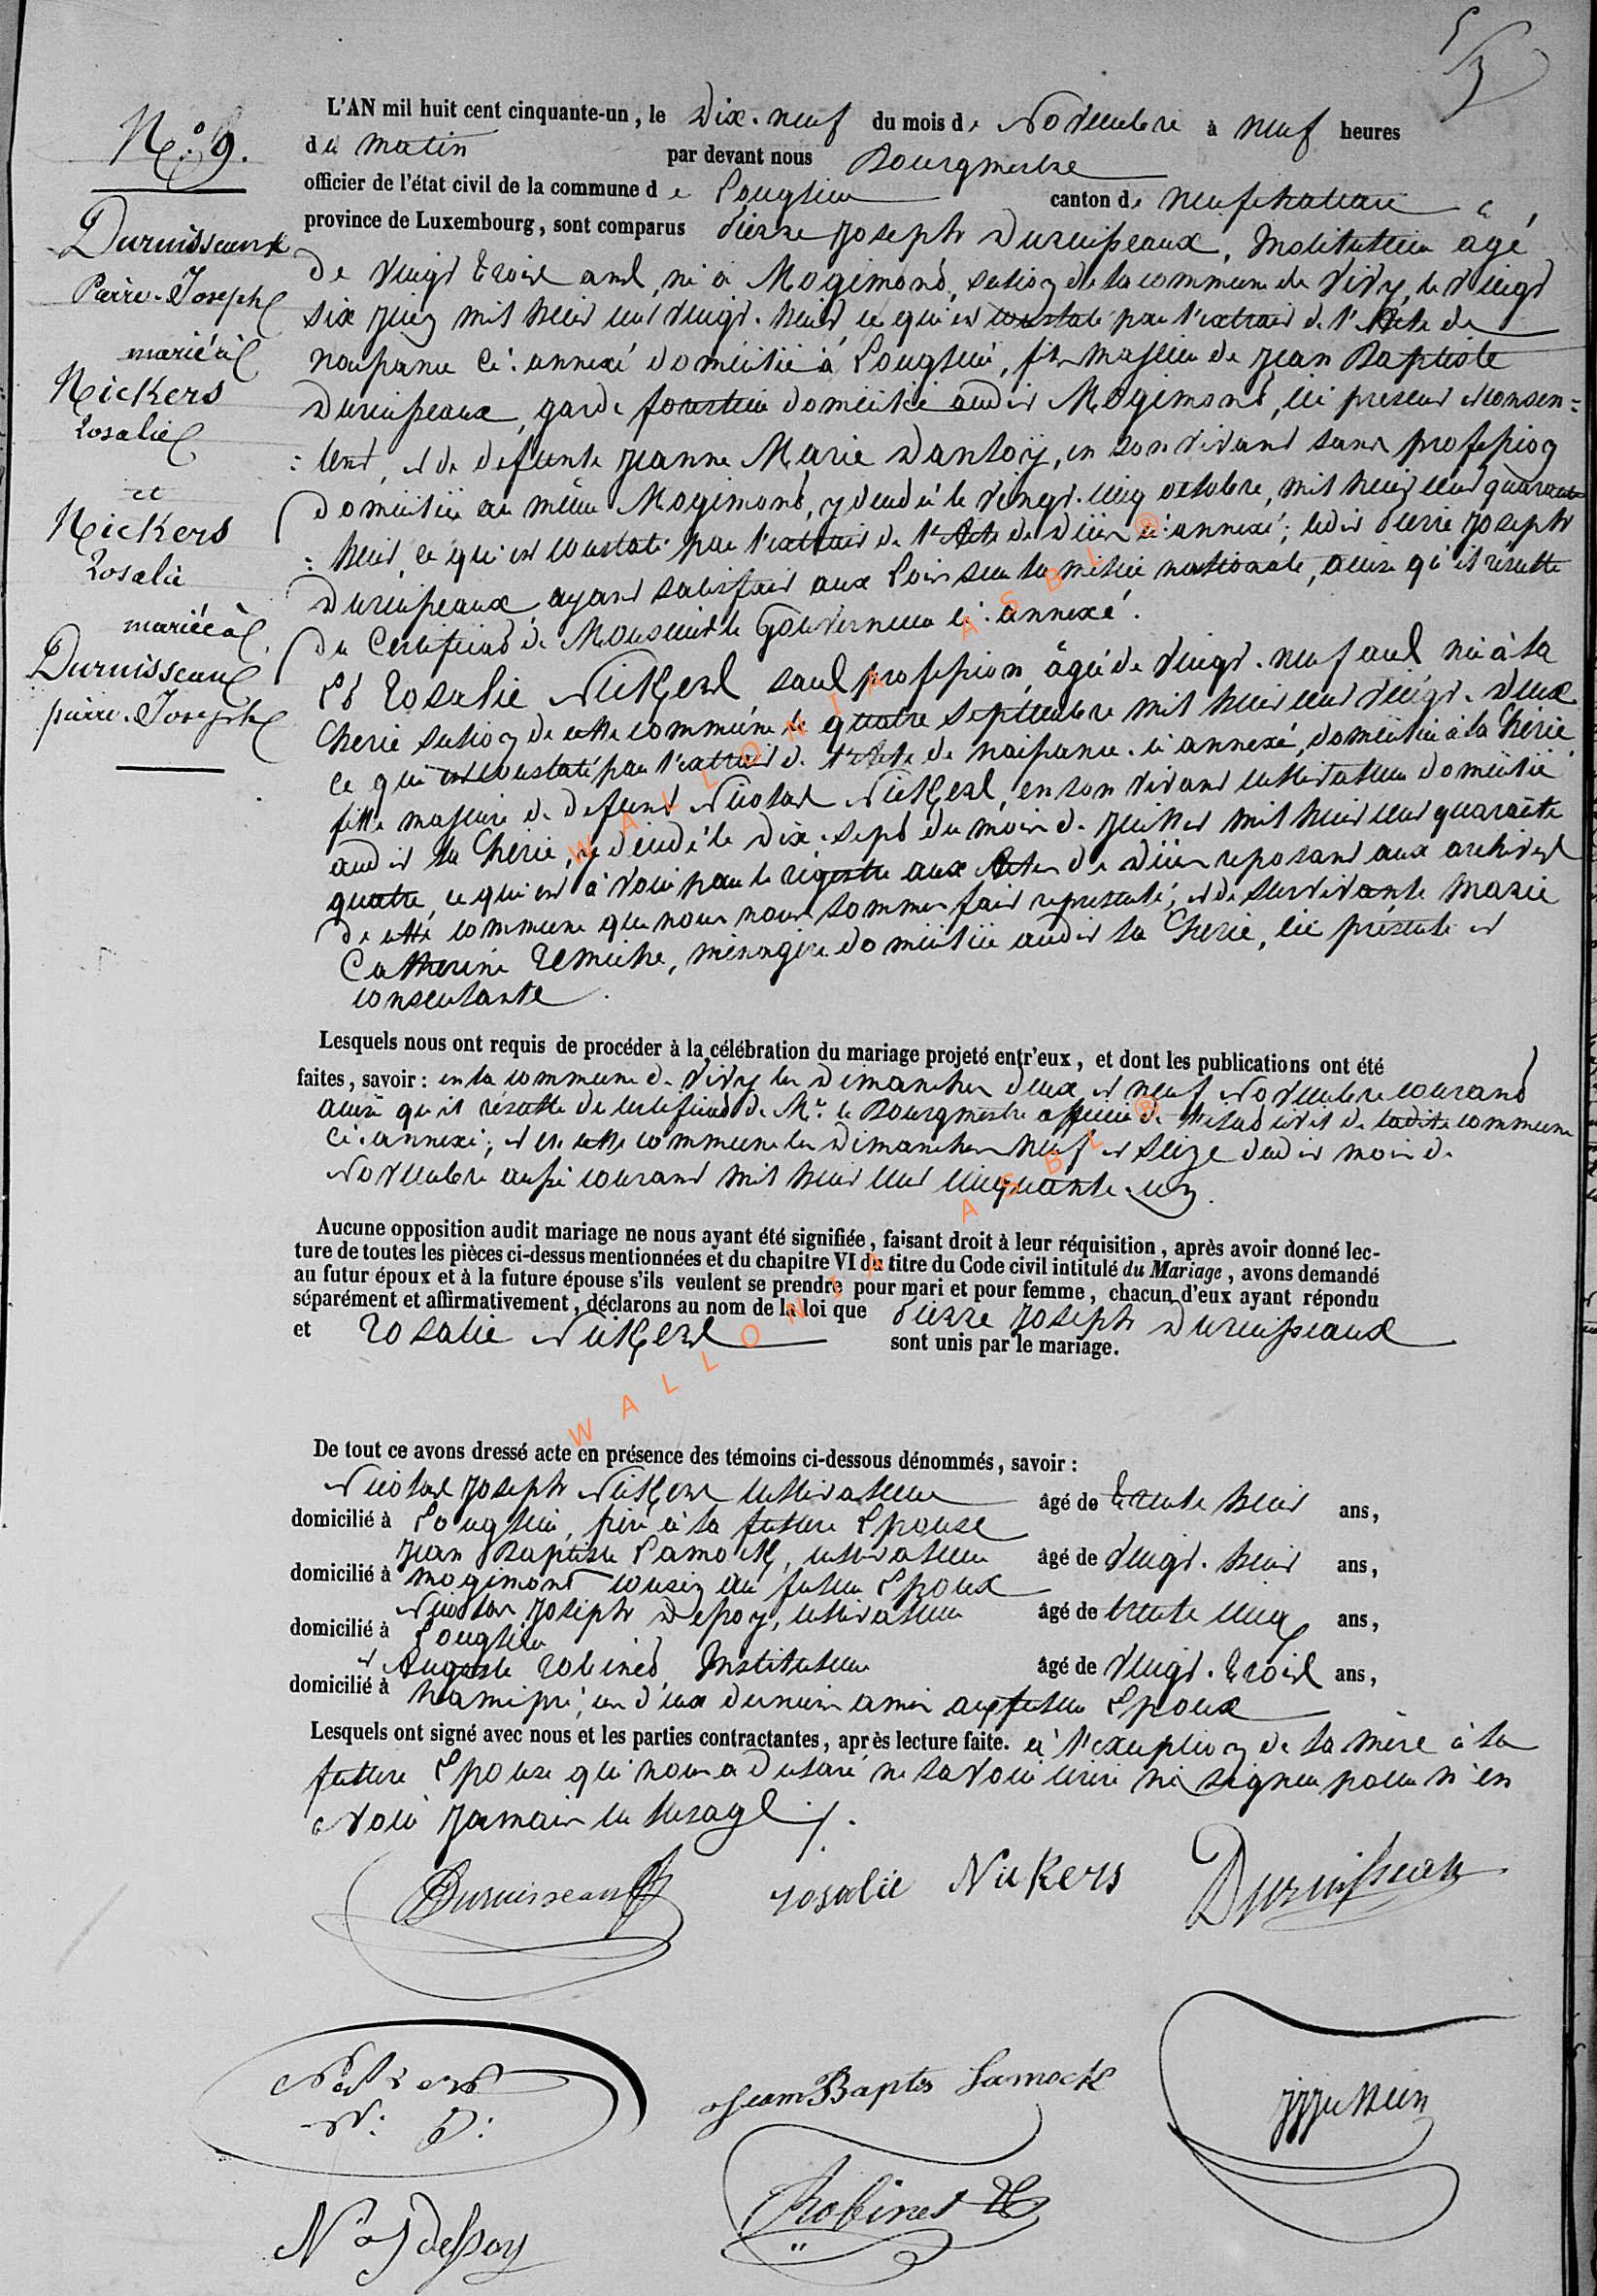 N.° 9.
Duruisseaux
Pierre-Joseph
marié à
Nickers
Rosalie
et
Nickers
Rosalie
mariée à
Duruisseaux
pierre-Joseph
L'AN mil huit cent cinquante-un, le Dix-neuf du mois de Novembre à neuf heures
du matin par devant nous Bourgmestre
officier de l'état civil de la commune de Longlier canton de Neufchateau
province de Luxembourg, sont comparus Pierre Joseph Duruisseaux, Instituteur agé
de vingt trois ans, né à Mogimont, section de la commune de Vivy, le vingt
six juin mil huit cent vingt-huit ce qui est constaté par l'extrait de l'Acte de
naissance ci-annexé domicilié à Longlier, fils majeur de Jean Baptiste
Duruisseaux, garde forestier domicilié audit Mogimont, ici présent et consen=
=tant, et de defunte Jeanne Marie Dantoÿ, en son vivant sans profession
domiciliée au même Mogimont, y décédé le vingt-cinq octobre, mil huit cent quarante
=huit, ce qui est constaté par l'extrait de l'Acte de décès ci-annexé; ledit Pierre Joseph
Duruisseaux ayant satisfait aux Lois sur la milice nationale, ainsi qu'il résulte
du Certificat de Monsieur le Gouverneur ci-annexé.
Et Rosalie Nickers sans profession, âgée de vingt-neuf ans née à la
Cherie section de cette commune le quatre Septembre mil huit cent vingt-deux
ce qui est constaté par l'extrait de l'Acte de naissance ci annexé, domiciliée à la Cherie
fille majeure de defunt Nicolas Nickers, en son vivant cultivateur domicilié
audit la Cherie, y décédé le dix-sept du mois de juillet mil huit cent quarante
quatre, ce qui est à voir par le régistre aux Actes de décès reposant aux archives
de cette commune que nous nous sommes fait représenté; et de survivante Marie
Catherine Remiche, ménagère domiciliée audit la Cherie, ici présente et
consentante.
Lesquels nous ont requis de procéder à la célébration du mariage projeté entr'eux, et dont les publications ont été
faites, savoir: en la commune de Vivy les Dimanches deux et neuf Novembre courant
ainsi qu'il résulte du certificat de Mr. le Bourgmestre officier de l'état civil de ladite commune
ci-annexé; et en cette commune les Dimanches neuf et seize dudit mois de
Novembre aussi courant mil huit cent cinquante-un.
Aucune opposition audit mariage ne nous ayant été signifiée, faisant droit à leur réquisition, après avoir donné lec-
ture de toutes les pièces ci-dessus mentionnées et du chapitre VI du titre du Code civil intitulé du Mariage, avons demandé
au futur époux et à la future épouse s'ils veulent se prendre pour mari et pour femme, chacun d'eux ayant répondu
séparément et affirmativement, déclarons au nom de la loi que Pierre Joseph Duruisseaux
et Rosalie Nickers sont unis par le mariage.
De tout ce avons dressé acte en présence des témoins ci-dessous dénommés, savoir:
Nicolas Joseph Nickers cultivateur âgé de trente huit ans,
domicilié à Longlier, frère à la future Epouse
Jean Baptiste Lamock, cultivateur âgé de vingt-huit ans,
domicilié à Mogimont cousin au futur Epoux
Nicolas Joseph Dessoy, cultivateur âgé de trente cinq ans,
domicilié à Longlier
et Auguste Robinet Instituteur âgé de vingt-trois ans,
domicilié à hamipré, ces deux derniers amis au futur Epoux
Lesquels ont signé avec nous et les parties contractantes, après lecture faite. à l'exception de la mère à la
future Epouse qui nous a declaré ne savoir écrire ni signer pour n'en
avoir jamais eu l'usage./.
Duruisseaux
rosalie Nickers
Duruisseau
Nickers
N. J.
Jean Baptis Lamock
Robinet
Nas J dessoy
WALLONIA ASBL ®
WALLONIA ASBL ®